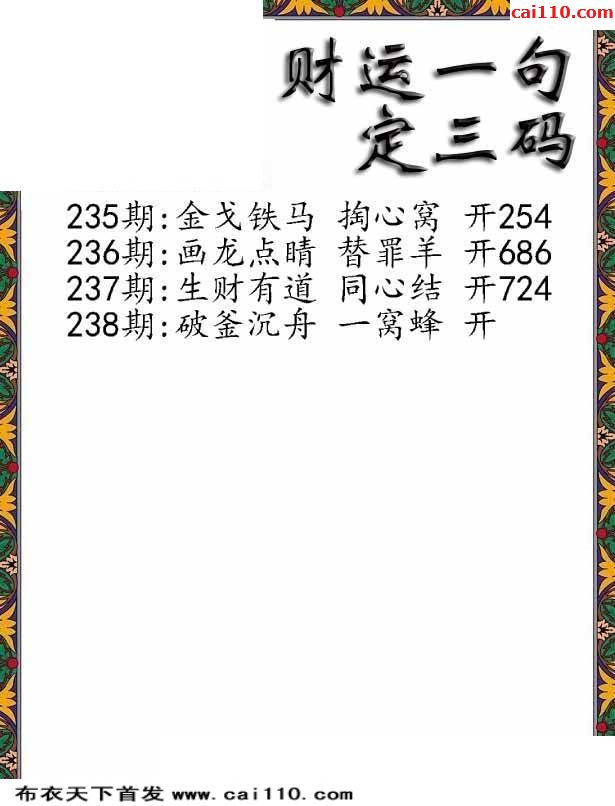 cai110.com
财运一句
定三码
235期:金戈铁马 掏心窝 开254
236期:画龙点睛 替罪羊 开686
237期:生财有道 同心结 开724
238期:破釜沉舟 一窝蜂 开
布衣天下首发 www.cai110.com